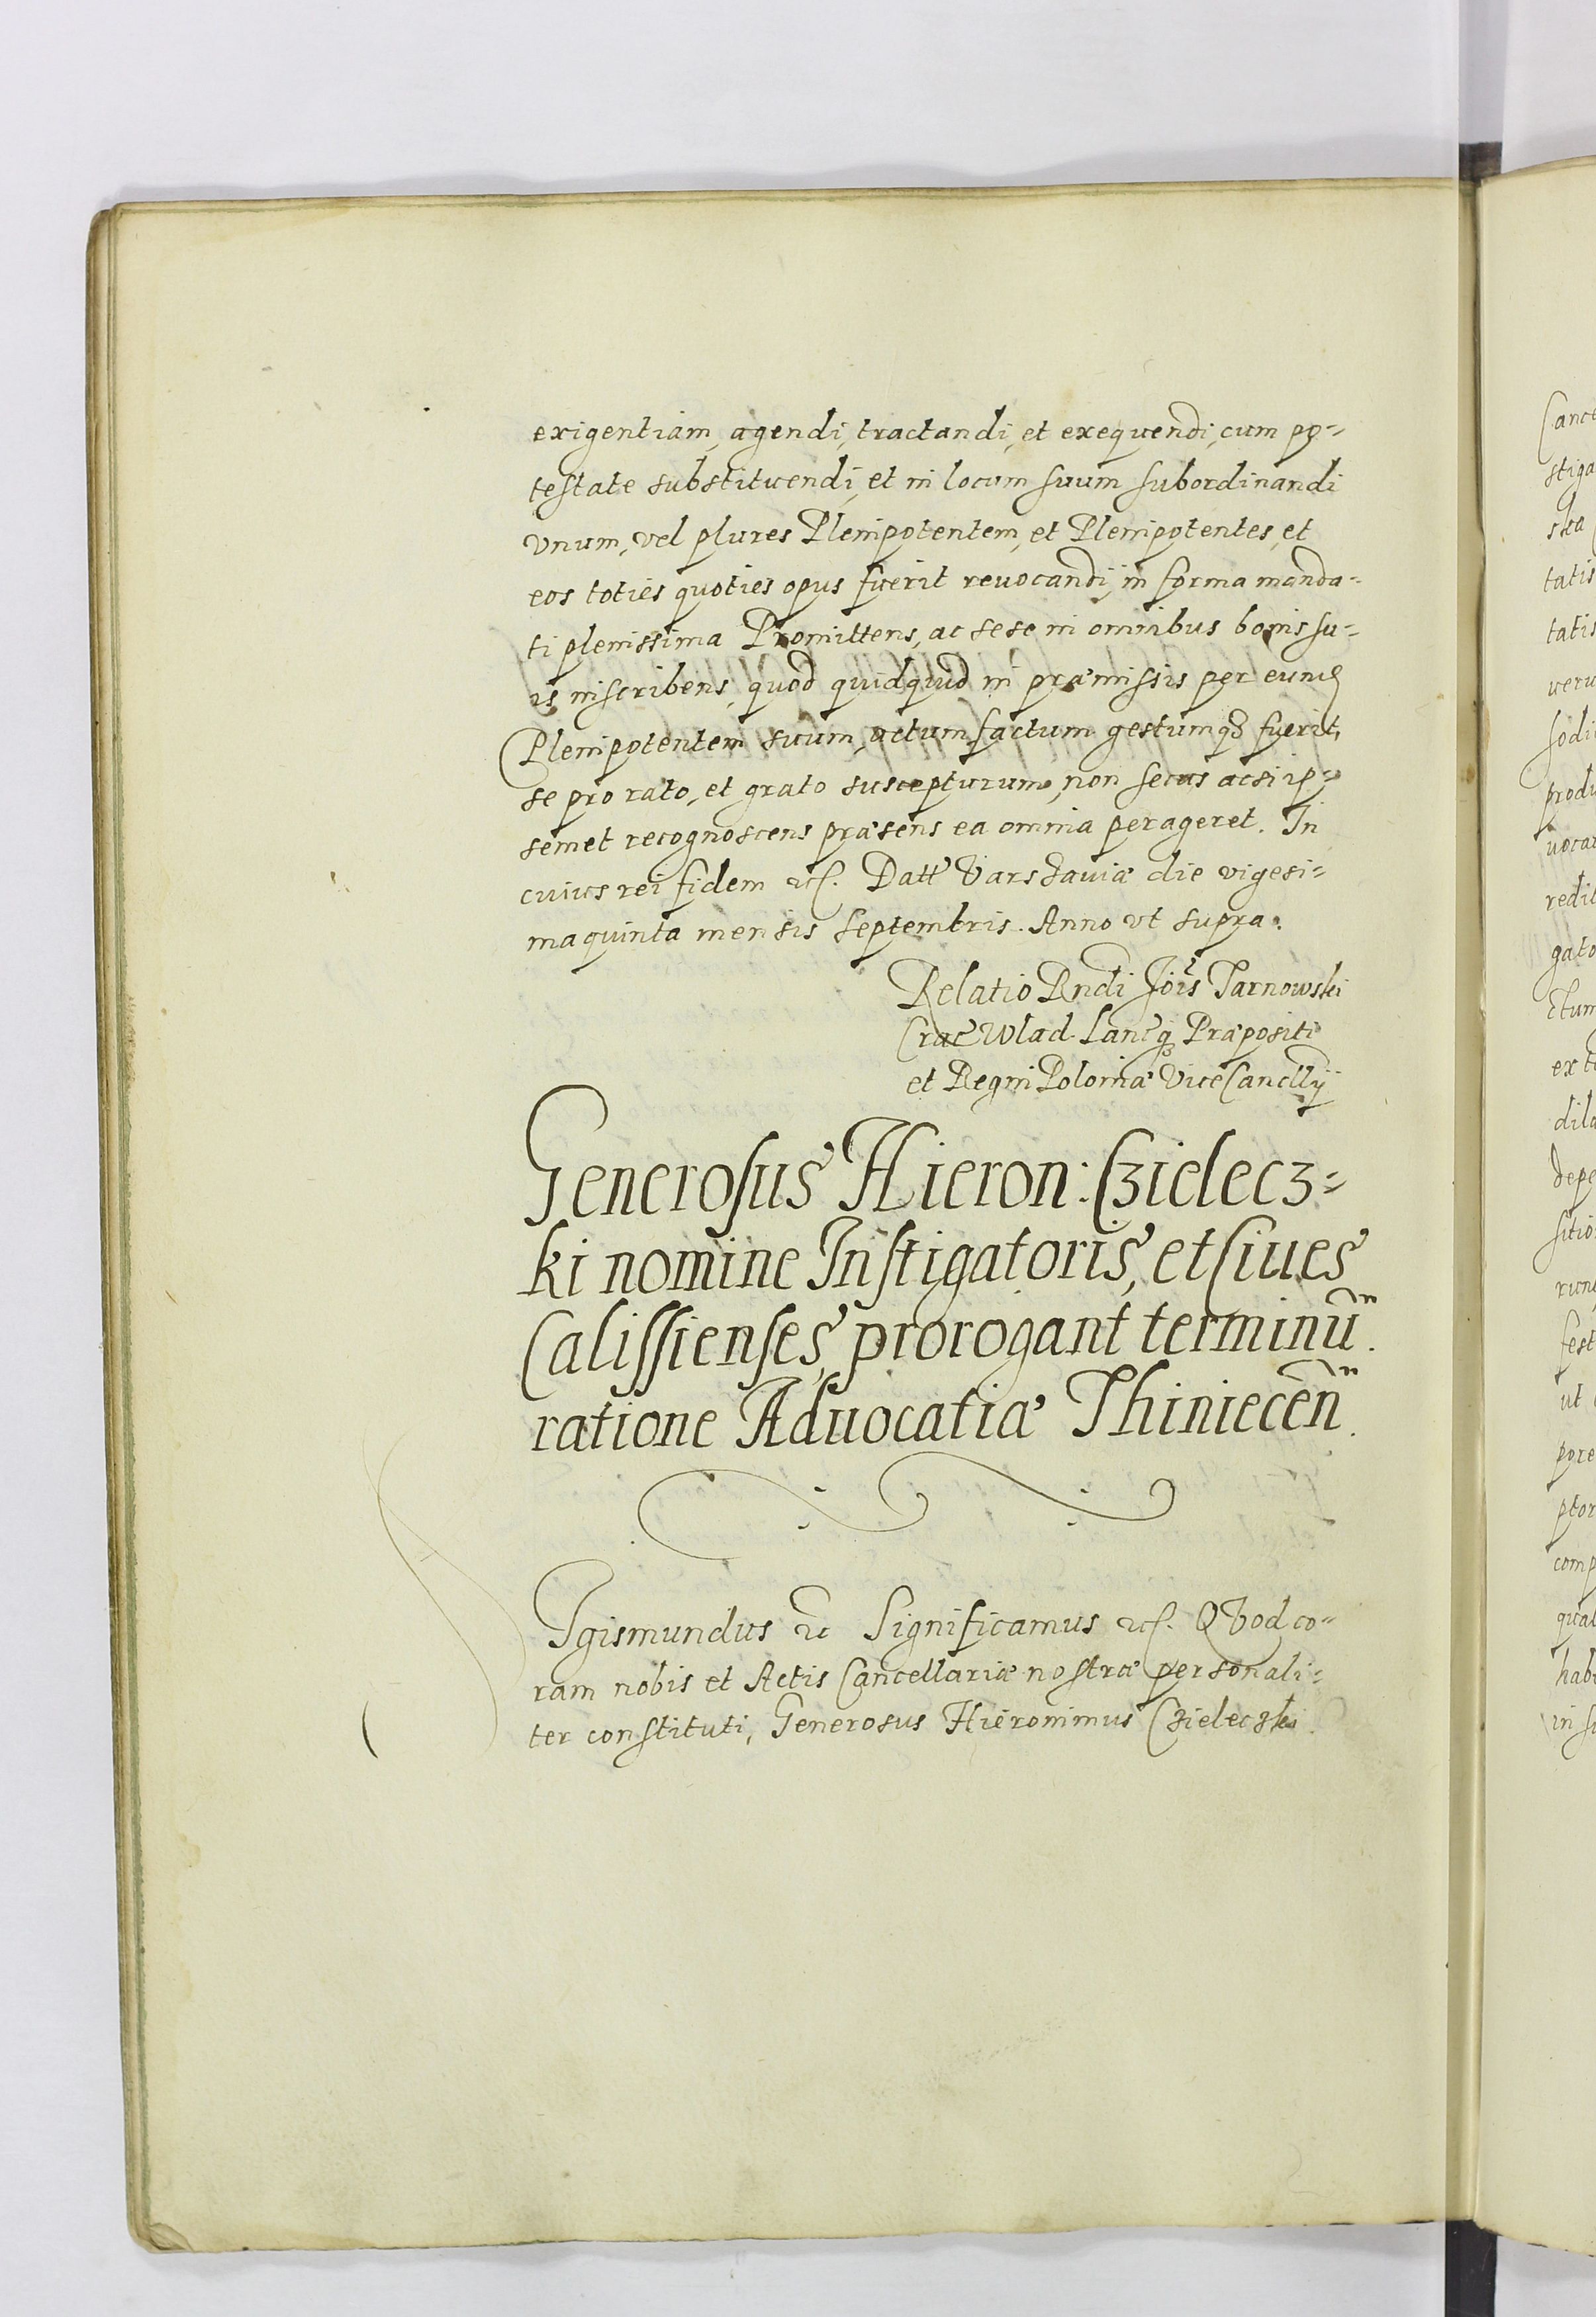 exigentiam, agendi, tractandi, et exequendi, cum po=
testate substituendi, et in locum suum subordinandi
vnum, vel plures Plenipotentem, et Plenipotentes, et
eos toties quoties opus fuerit reuocandi, in forma manda=
ti plenissima Promittens, ac sese in omnibus bonis su=
is inscribens, quod quidquid in præmissis per eund
Plenipotentem suum, actum, factum gestumq3 fuerit,
se pro rato, et grato suscepturum, non secus acsi ip=
semet recognoscens præsens ea omnia perageret. In
cuius rei fidem etc. Datt Varschauiæ die vigesi=
ma quinta mensis Septembris. Anno vt supra.
Relatio Rndi Jois Tarnowski
Crac Wlad. Lancq3 Præpositi
et Regni Poloniæ ViceCancllij
Generosus Hieron: Czielecz=
ki nomine Instigatoris, et Ciues
Calissienses, prorogant terminū.
ratione Aduocatiæ Thiniecen̄.
Sgismundus etc Significamus etc. QVod co=
ram nobis et Actis Cancellariæ nostræ personali=
ter constituti, Generosus Hieronimus Czieleczki